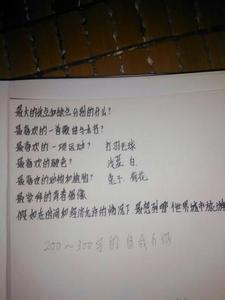 最大的优点和缺点分别的什么?
最喜欢的一首歌曲与书?
最喜欢的一项运动? 打羽毛球
最喜欢的颜色? 浅蓝 白
最喜欢的动物和植物? 兔子 荷花
最崇拜的青春偶像
假如在时间和经济允许的情况下最想到哪个世界城市旅游
200~300字的自我介绍